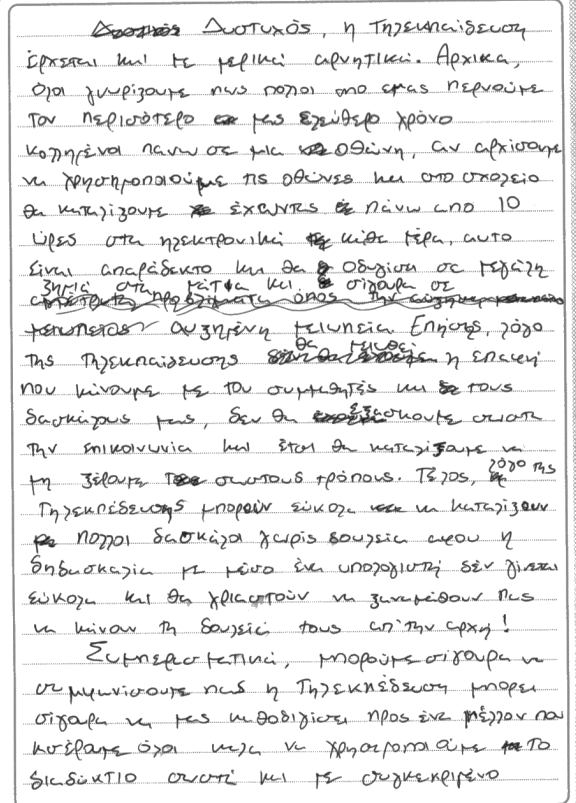 Δυστυχός, η Τηλεκπαίδευση
έρχεται και με μερικά αρνητικά. Αρχικά,
όλοι γνωρίζουμε πως πολοί απο εμας περνούμε
τον περισότερο μας ελεύθερο χρόνο
κολλημένοι πανω σε μια οθώνη, αν αρχίσουμε
να χρησημοποιούμε τις οθώνες και στο σχολείο
θα καταλίξουμε έχωντας πάνω απο 10
ώρες στα ηλεκτρονικά κάθε μέρα, αυτο
είναι απαράδεκτο και θα οδυγίση σε μεγάλη
ζημιά στα μάτια και σίγουρα σε
αυξημένη μειωπεία. Επήσης, λόγο
της Τηλεκπαίδευσης θα μειωθεί η επαφή
που κάνουμε με του συμμαθητές και τους
δασκάλους μας, δεν θα εξασκουμε σωστα
την επικοινωνία και έτσι θα καταλίξουμε να
μη ξέρουμε σωστους τρόπους. Τέλος, λόγο της
Τηλεκπέδευσης μπορούν εύκολα να καταλίξουν
πολλοι δασκάλοι χωρίς δουλεία αφου η
διδασκαλία με μέσο ένα υπολογιστή δέν γίνεται
εύκολα και θα χριαστούν να ξαναμάθουν πως
να κάνουν τη δουλειά τους απ'την αρχή!
Συμπερασματικά, μπορούμε σίγουρα να
συμφωνίσουμε πως η Τηλεκπέδευση μπορει
σίγουρα να μας καθοδιγίσει προς ένα μέλλον που
κσέραμε όλοι καλα να χρησιμοποιούμε το
διαδύκτιο σωστά και με συγκεκριμένο